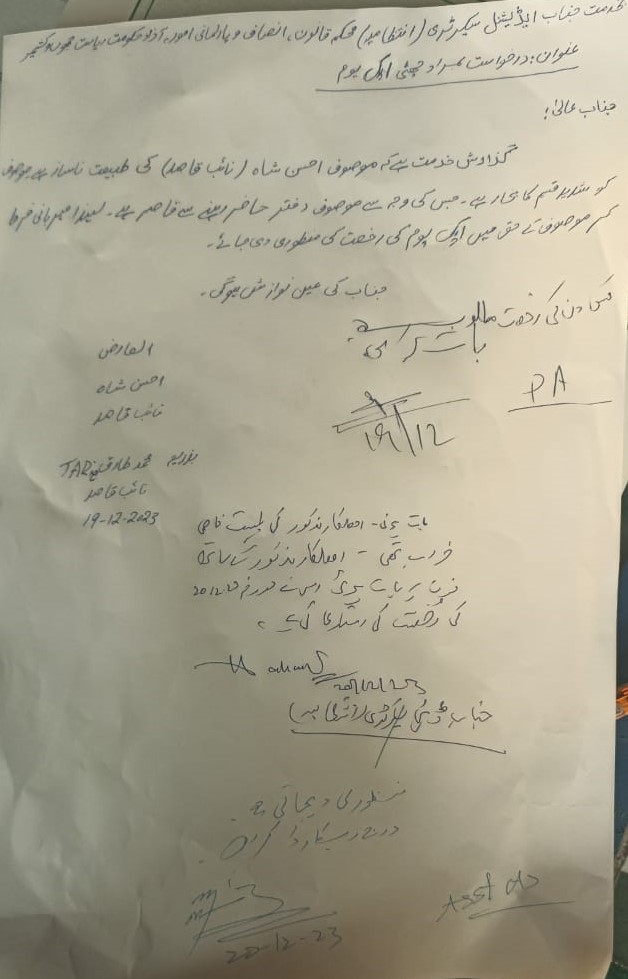 بخدمت جناب ایڈیشنل سیکرٹری (انتظامیہ) محکمہ قانون، انصاف و پارلیمانی امور، آزاد حکومت ریاست جموں و کشمیر
عنوان: درخواست بمراد چھٹی ایک یوم
جناب عالیٰ!
گذارش خدمت ہے کہ موصوف احسن شاہ (نائب قاصد) کی طبیعت ناساز ہے موصوف
کو شدید قسم کا بخار ہے۔ جس کی وجہ سے موصوف دفتر حاضر ہونے سے قاصر ہے۔ لہذا مہربانی فرما
کر موصوف کے حق میں ایک یوم کی رخصت کی منظوری دی جائے۔
جناب کی عین نوازش ہوگی۔
کس دن کی رخصت مطلوب ہے
بات کرائیں
PA
19/12
العارض
احسن شاہ
نائب قاصد
بذریعہ محمد طارق
نائب قاصد
19-12-2023
بات ہوئی۔ اہلکار مذکور کی طبیعت کافی
خراب تھی۔ اہلکار مذکور کے ساتھ
فون پر بات ہوئی اس نے مورخہ
کی رخصت کی استدعا کی ہے۔
جناب ڈپٹی سیکرٹری (انتظامیہ)
منظوری دیجاتی ہے۔
درج ریکارڈ کریں۔
20-12-23